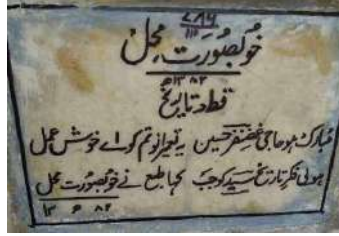 ۷۸۶
خوبصورت محل
۱۳۸۲ھ
قطعہ تاریخ
مبارک ہو حاجی غضنفر حسین یہ تعمیر نو تم کو اے خوش عمل
ہوئی فکر تاریخ سید کو جب کہا طبع نے خوبصورت محل
۱۳ ھ ۸۲